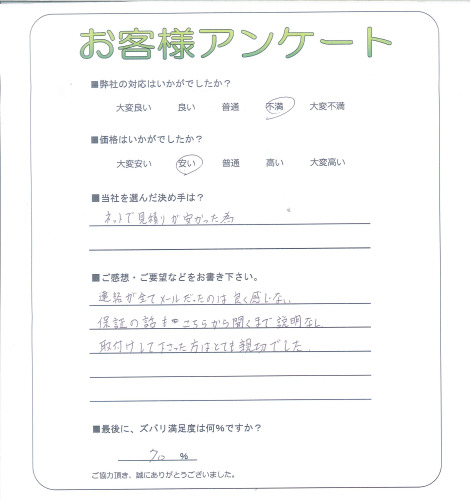 お客様アンケート
■弊社の対応はいかがでしたか？
大変良い 良い 普通 不満 大変不満
■価格はいかがでしたか？
大変安い 安い 普通 高い 大変高い
■当社を選んだ決め手は？
ネットで見積りが安かった為
■ご感想・ご要望などをお書き下さい。
連絡が全てメールだったのは良く感じない
保証の話もこちらから聞くまで説明なし
取付けして下さった方はとても親切でした.
■最後に、ズバリ満足度は何%ですか？
70 %
ご協力頂き、誠にありがとうございました。